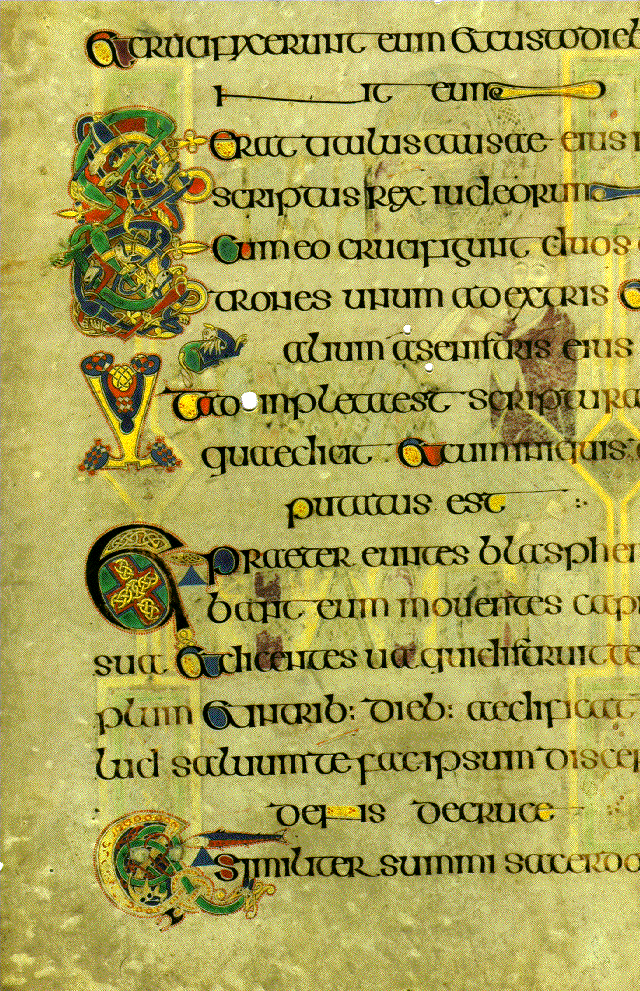 Et crucifixerunt eum Et custodieb
nt eum
Et Erat titulus causae eius
scriptus rex iudeorum
Et Cum eo crucifigunt duos
trones unum ad extris
alium a senistris eius
Et Ad inpleta est scriptura
quae dicit Et cum iniquis
putatus est
Et Praeter euntes blasphe
bant eum mouentes capi
sua Et dicentes ua qui distruit te
plum Et in trib: dieb: aedificat
lud saluum te fac ipsum discen
dens de cruce
Similiter summi sacerdo